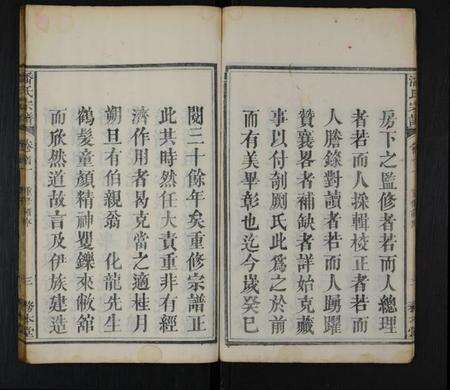 房下之監修者若而人總理
者若而人採輯校正者若而
人謄錄對讀者若而人踴躍
贊襄畧者補缺者詳始克蕆
事以付剞劂氏此為之於前
而有美畢彰也迄今歲癸巳
閱三十餘年矣重修宗譜正
此其時然任大責重非有經
濟作用者曷克當之適桂月
朔旦有伯親翁 化龍先生
鶴髮童顏精神矍鑠來敝舘
而欣然道故言及伊族建造
潘氏宗譜 卷首 三 務本堂